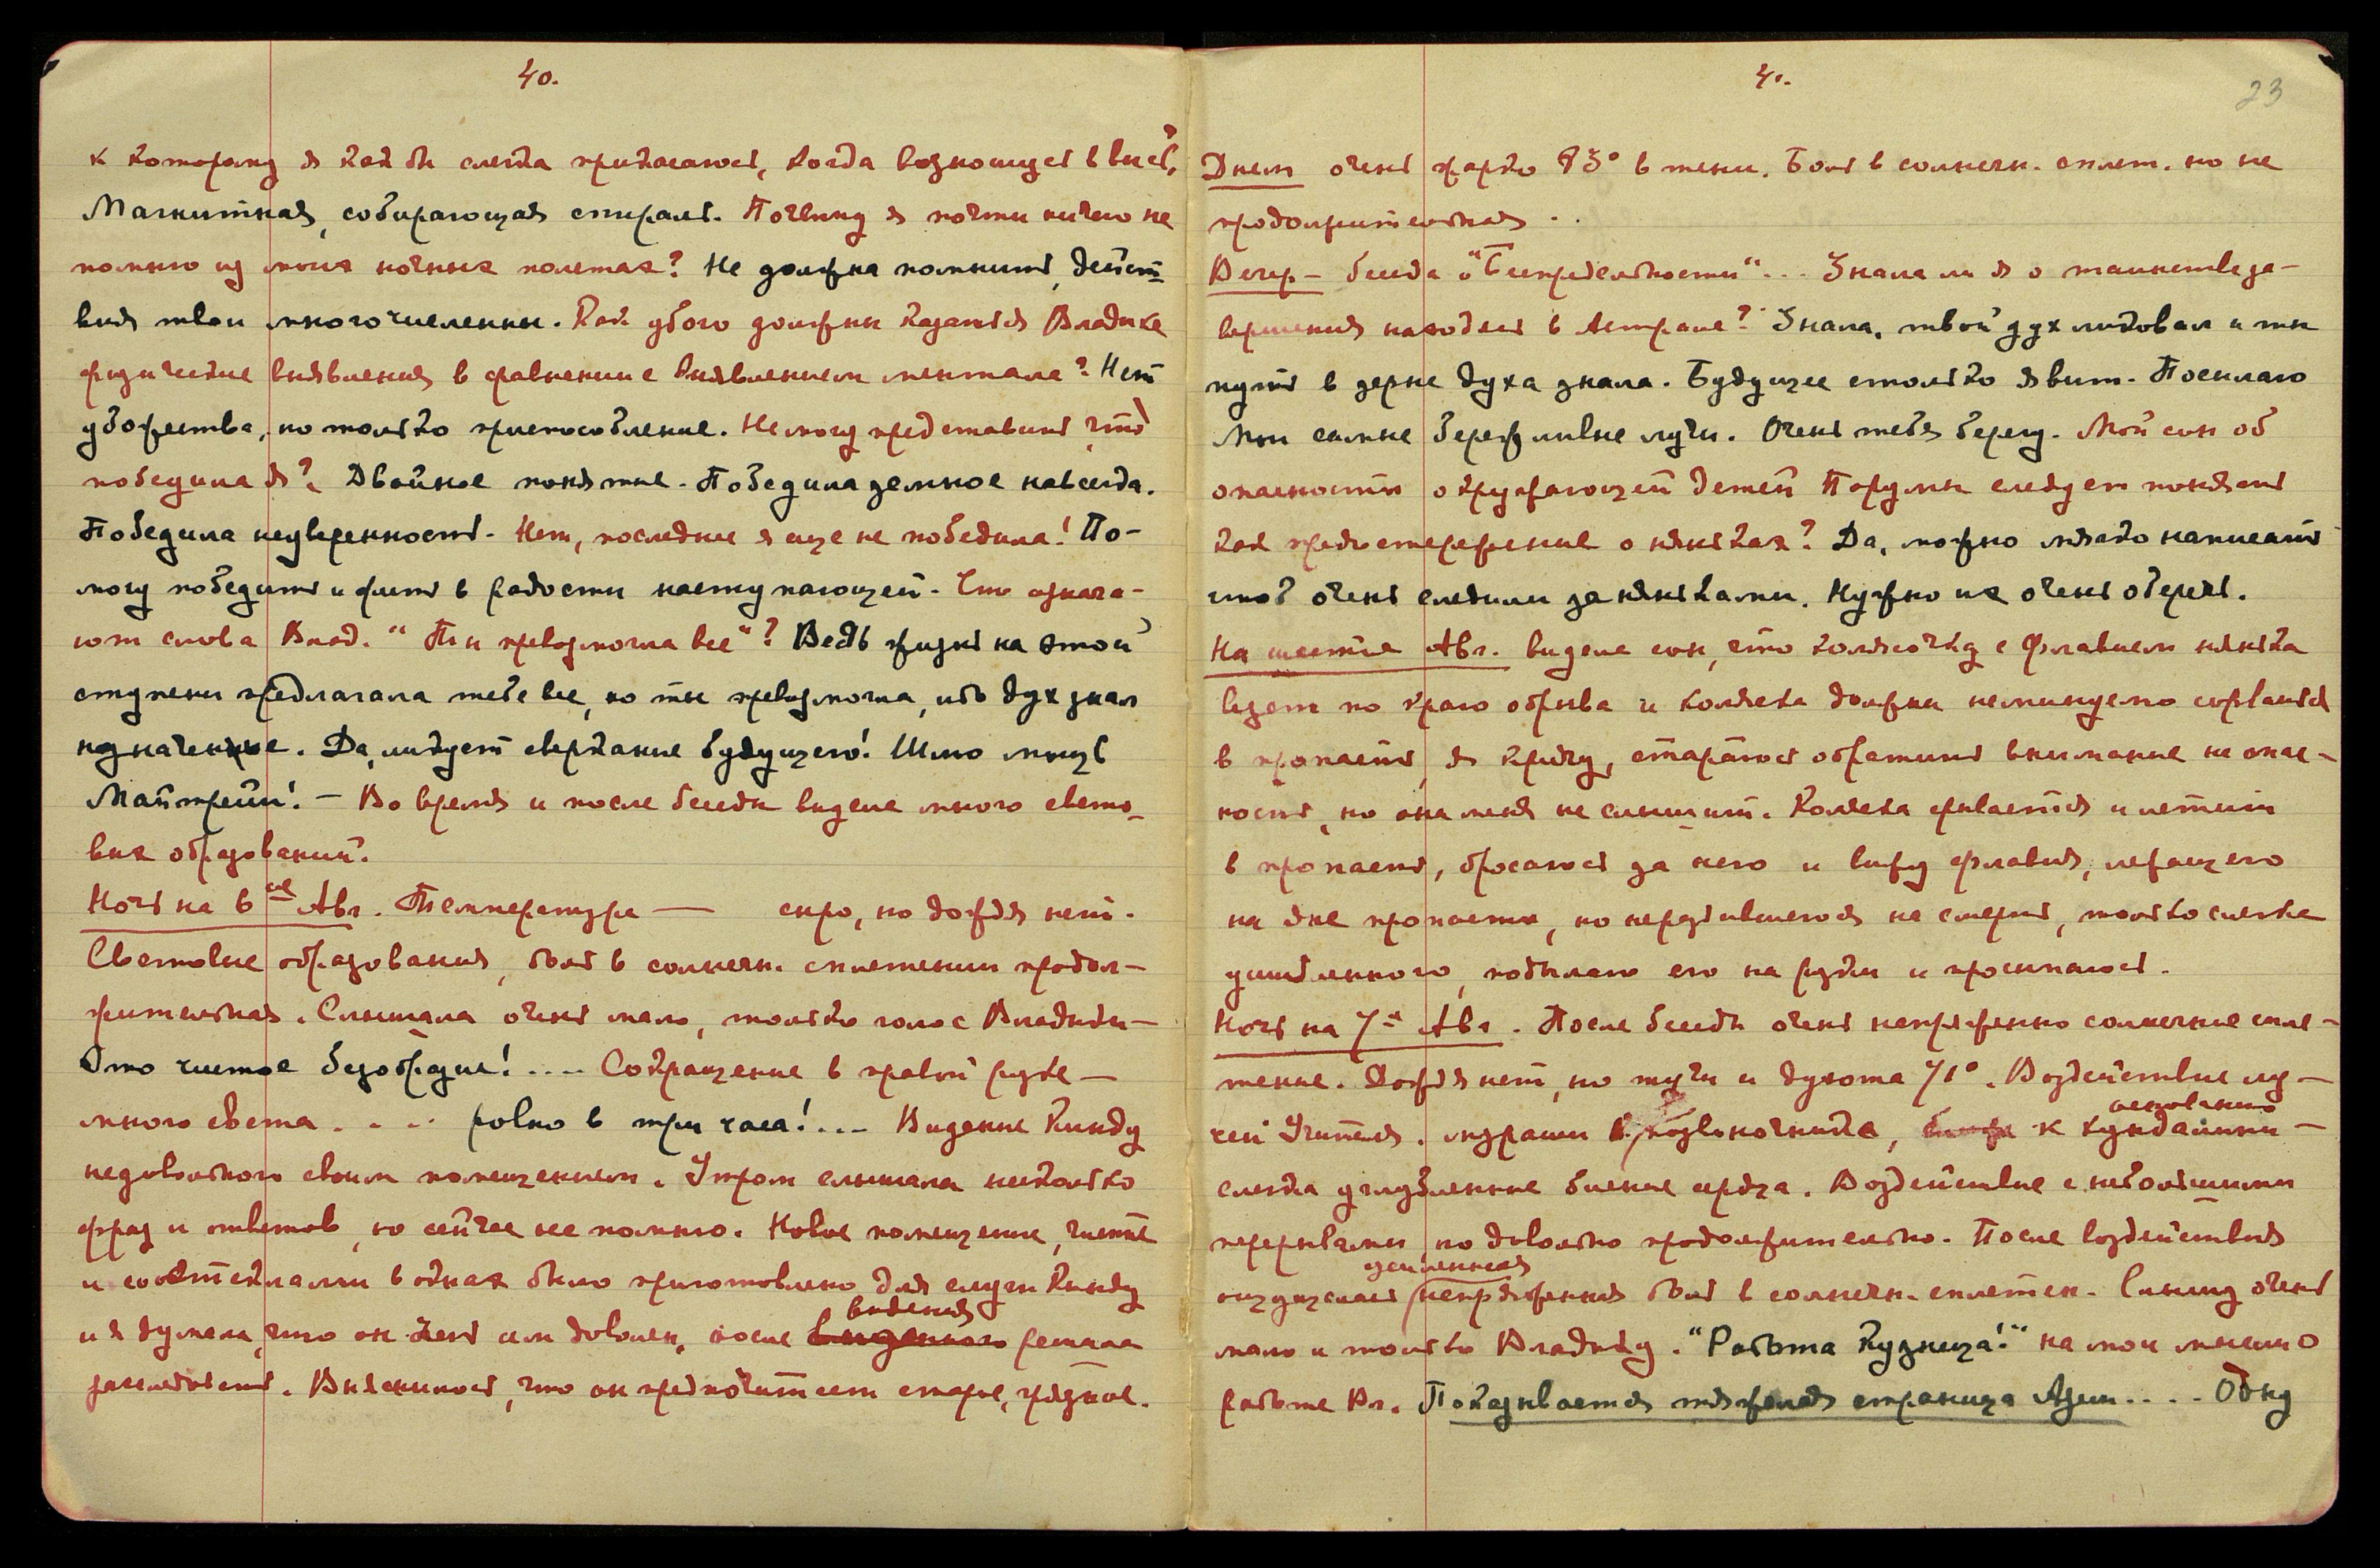 40.
к которому я как бы слегка прикасаюсь, когда возношусь ввысь?
Магнитная, собирающая спираль. Почему я почти ничего не
помню из моих ночных полетах? Не должна помнить, дейст-
вия твои многочисленны. Как убого должны казаться Владыке
физические выявления в сравнении с выявлением ментала? Нет
убожества, но только приспособление. Не могу представить что
победила я? Двойное понятие. Победила земное навсегда.
Победила неуверенность. Нет, последние я еще не победила! По-
могу победить и жить в радости наступающей. Что означа-
ют слова Влад. "Ты превозмогла все"? Ведь жизнь на этой
ступени предлагала тебе все, но ты превозмогла, ибо дух знал
назначенное. Да, ликует сверкание будущего! Шлю мощь
Майтрейи! — Во время и после беседы видела много свето-
вых образований.
Ночь на 6ое Авг. Температура — сыро, но дождя нет.
Световые образования, боль в солнечн. сплетении продол-
жительная. Слышала очень мало, только голос Владыки —
Это чистое безобразие! .... Сокращение в правой руке —
много света .... ровно в три часа! ... Видение Кинду
недовольного своим помещением. Утром слышала несколько
фраз и ответов, но сейчас не помню. Новое помещение, чистое
и со стеклами в окнах было приготовлено для слуги Кинду
и я думала, что он им доволен, после виденного видения решила
расследовать. Выяснилось, что он предпочитает старое, грязное.
41.
23
Днем очень жарко 83° в тени. Боль в солнечн. сплет. но не
продолжительная ..
Вечер — беседа и "Беспредельности"... Знала ли я о таинстве за-
вершения находясь в Астрале? Знала, твой дух ликовал и ты
путь в зерне духа знала. Будущее столько явит. Посылаю
Мои самые бережливые лучи. Очень тебя берегу. Мой сон об
опасности окружающей детей Порумы следует понять
как предостережение о няньках? Да, можно мягко написать
чтоб очень следили за няньками. Нужно их очень оберечь.
На шестое Авг. видела сон, что колясочку с Флавием нянька
везет по краю обрыва и коляска должна неминуемо сорваться
в пропасть, я кричу, стараюсь обратить внимание на опас-
ность, но она меня не слышит. Коляска срывается и летит
в пропасть, бросаюсь за нею и вижу Флавия, лежащего
на дне пропасти, но неразбившегося на смерть, только слегка
ушибленного, подымаю его на руки и просыпаюсь.
Ночь на 7ое Авг. После беседы очень напряженно солнечное спле-
тение. Дождя нет, но тучи и духота 71°. Воздействие лу-
чей Учителя. мурашки позвоночника, к основанию кундалини —
слегка углубленные биение сердца. Воздействие с небольшими
перерывами, но довольно продолжительно. После воздействия
ощущалась усиленная напряженная боль в солнечн. сплетен. Слышу очень
мало и только Владыку. "Работа Кузнеца!" на мои мысли о
работе Вл. Показывается тяжелая страница Азии .... Одну